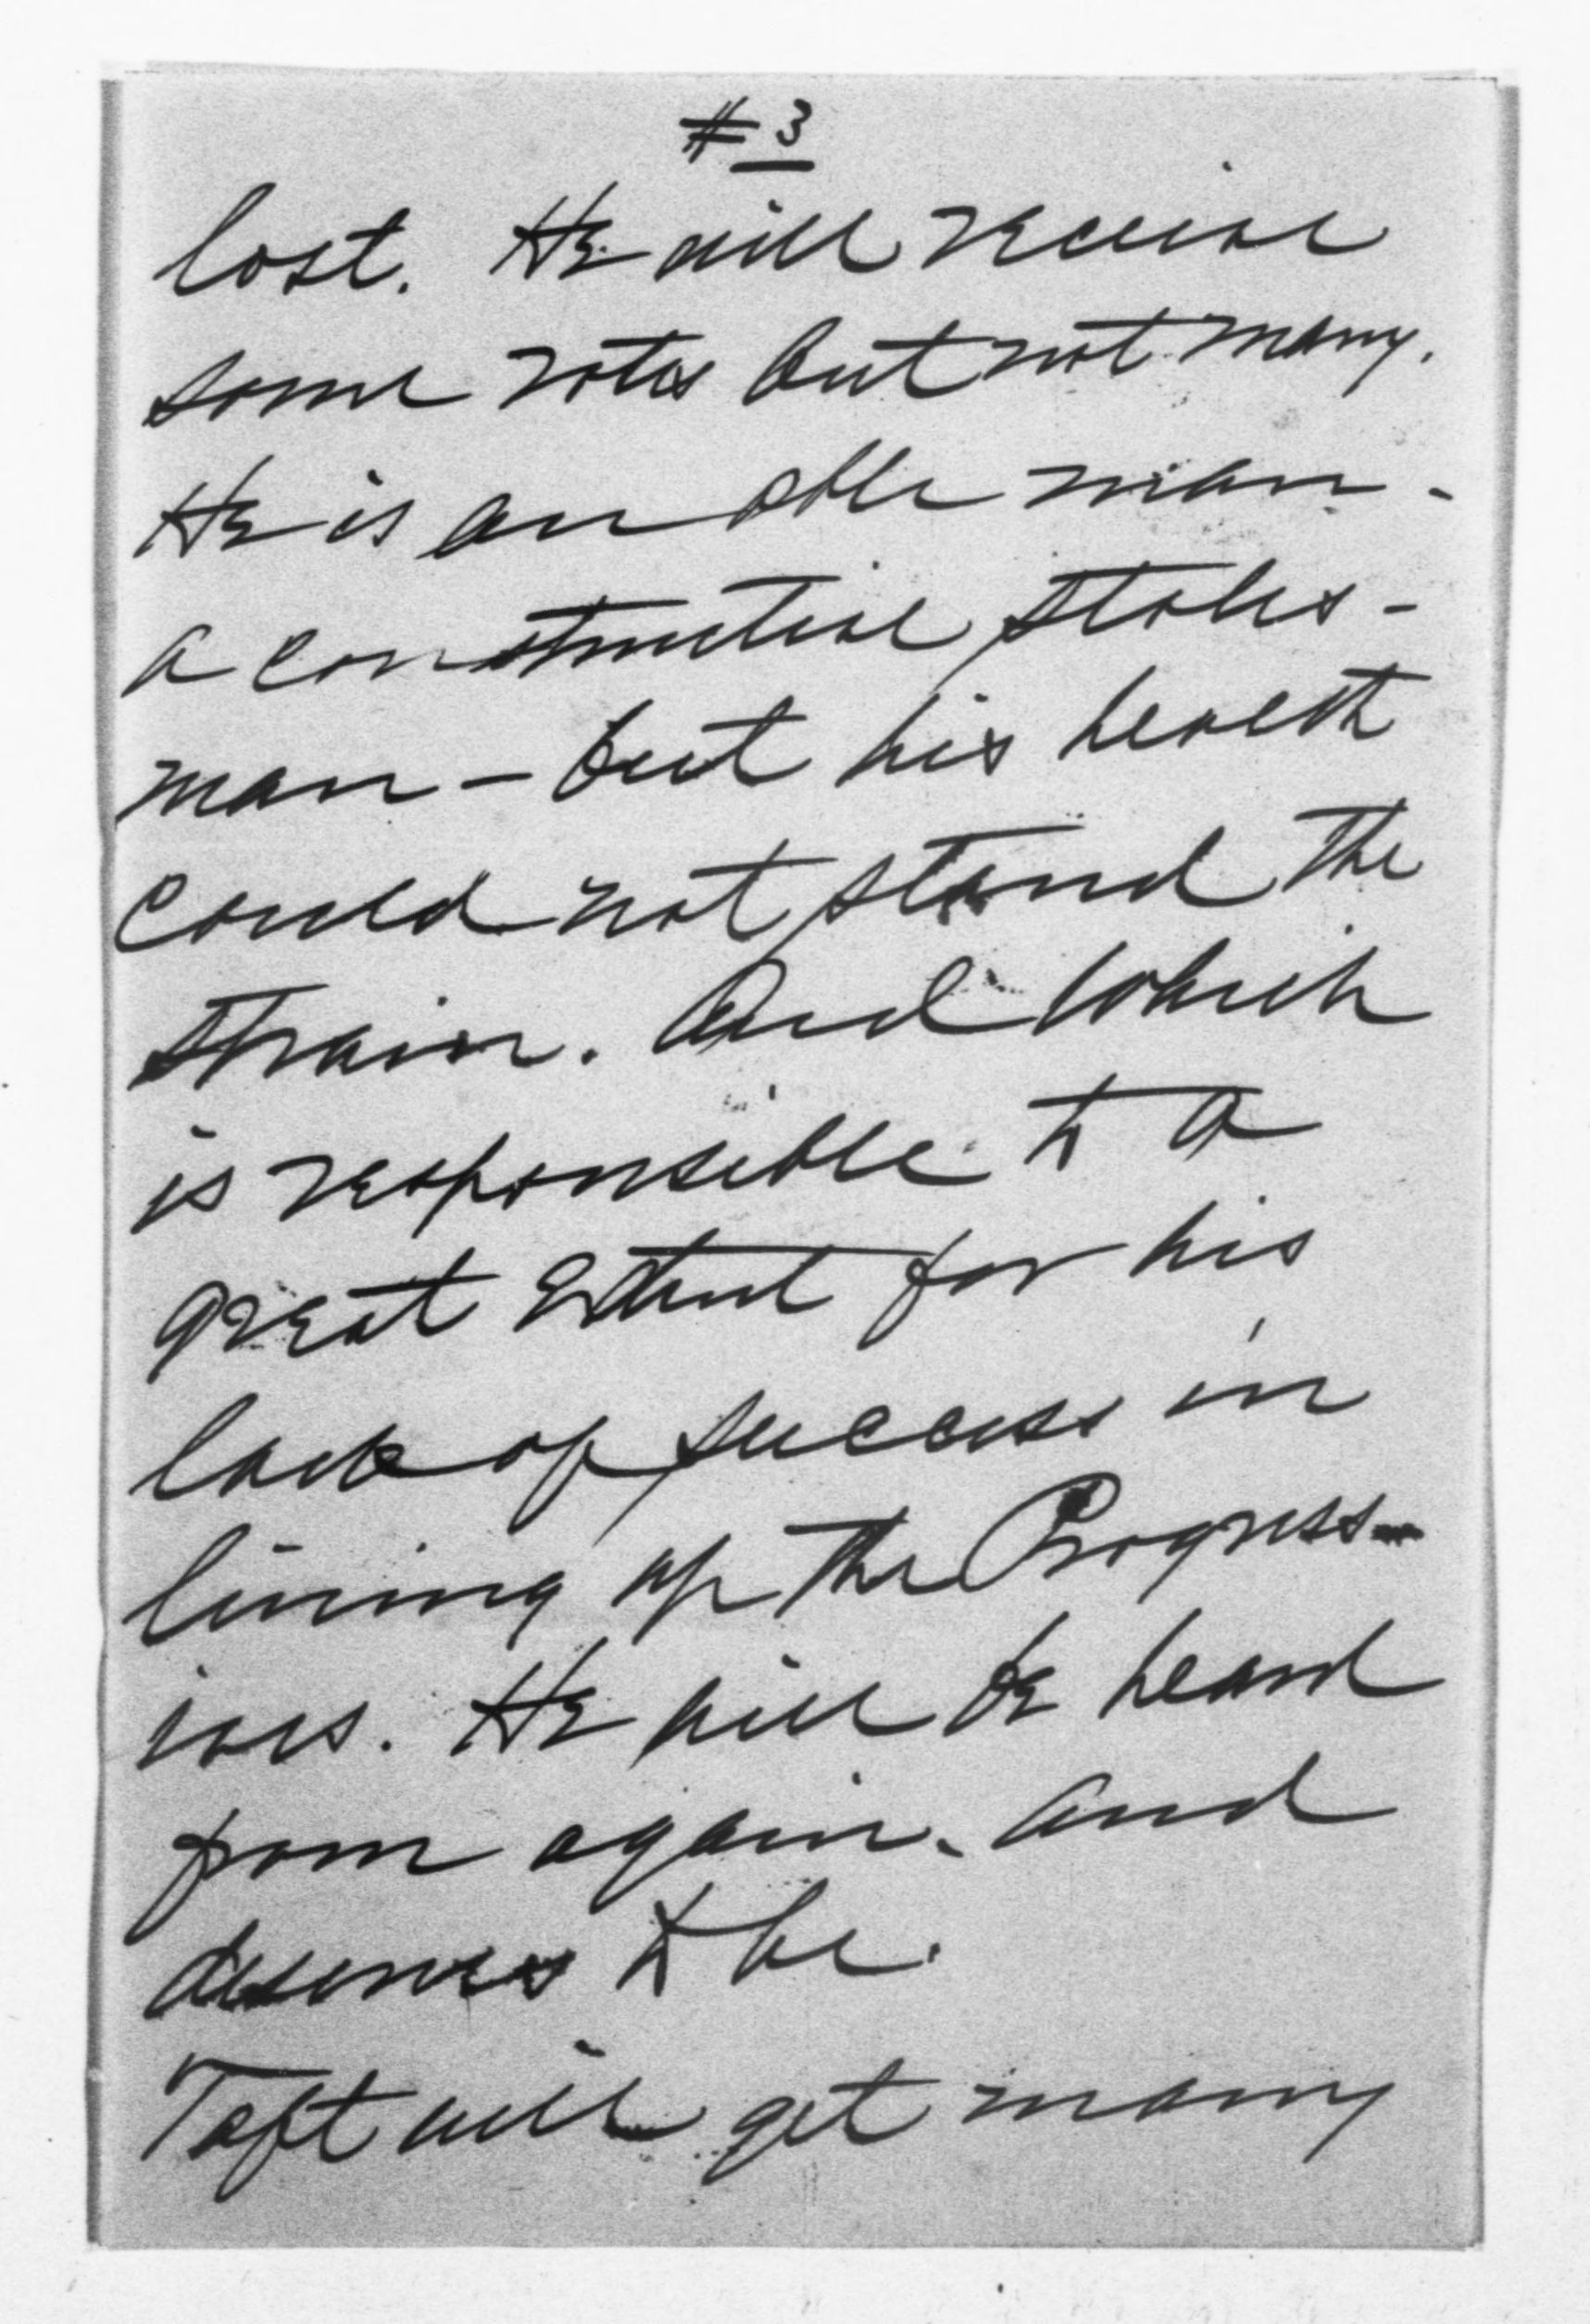 #3
lost. He will receive
some votes but not many.
He is an able man -
a constructive states-
man - but his health
could not stand the
strain. And which
is responsible to a
great extent for his
lack of success in
lining up the Progress-
ives. He will be heard
from again. and
deserves to be.
Taft will get many